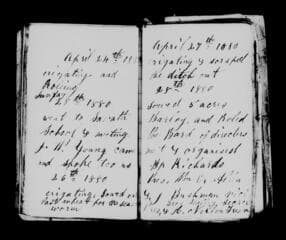 April 24th 18
irigating and
Rolling
Sunday
25th 1880
went to Sabath
School & meeting
J. W. Young came
and spoke too us
26th 1880
erigating, Sowed
last wheat for the sea
worm
April 27th 1880
irigating & scraped
the ditch out
28th 1880
Sowed 5 acres
Barley, and Held
the Board of directors
met & organised
Wm Richards
Pres. Wm C. Allen
& J Bushman